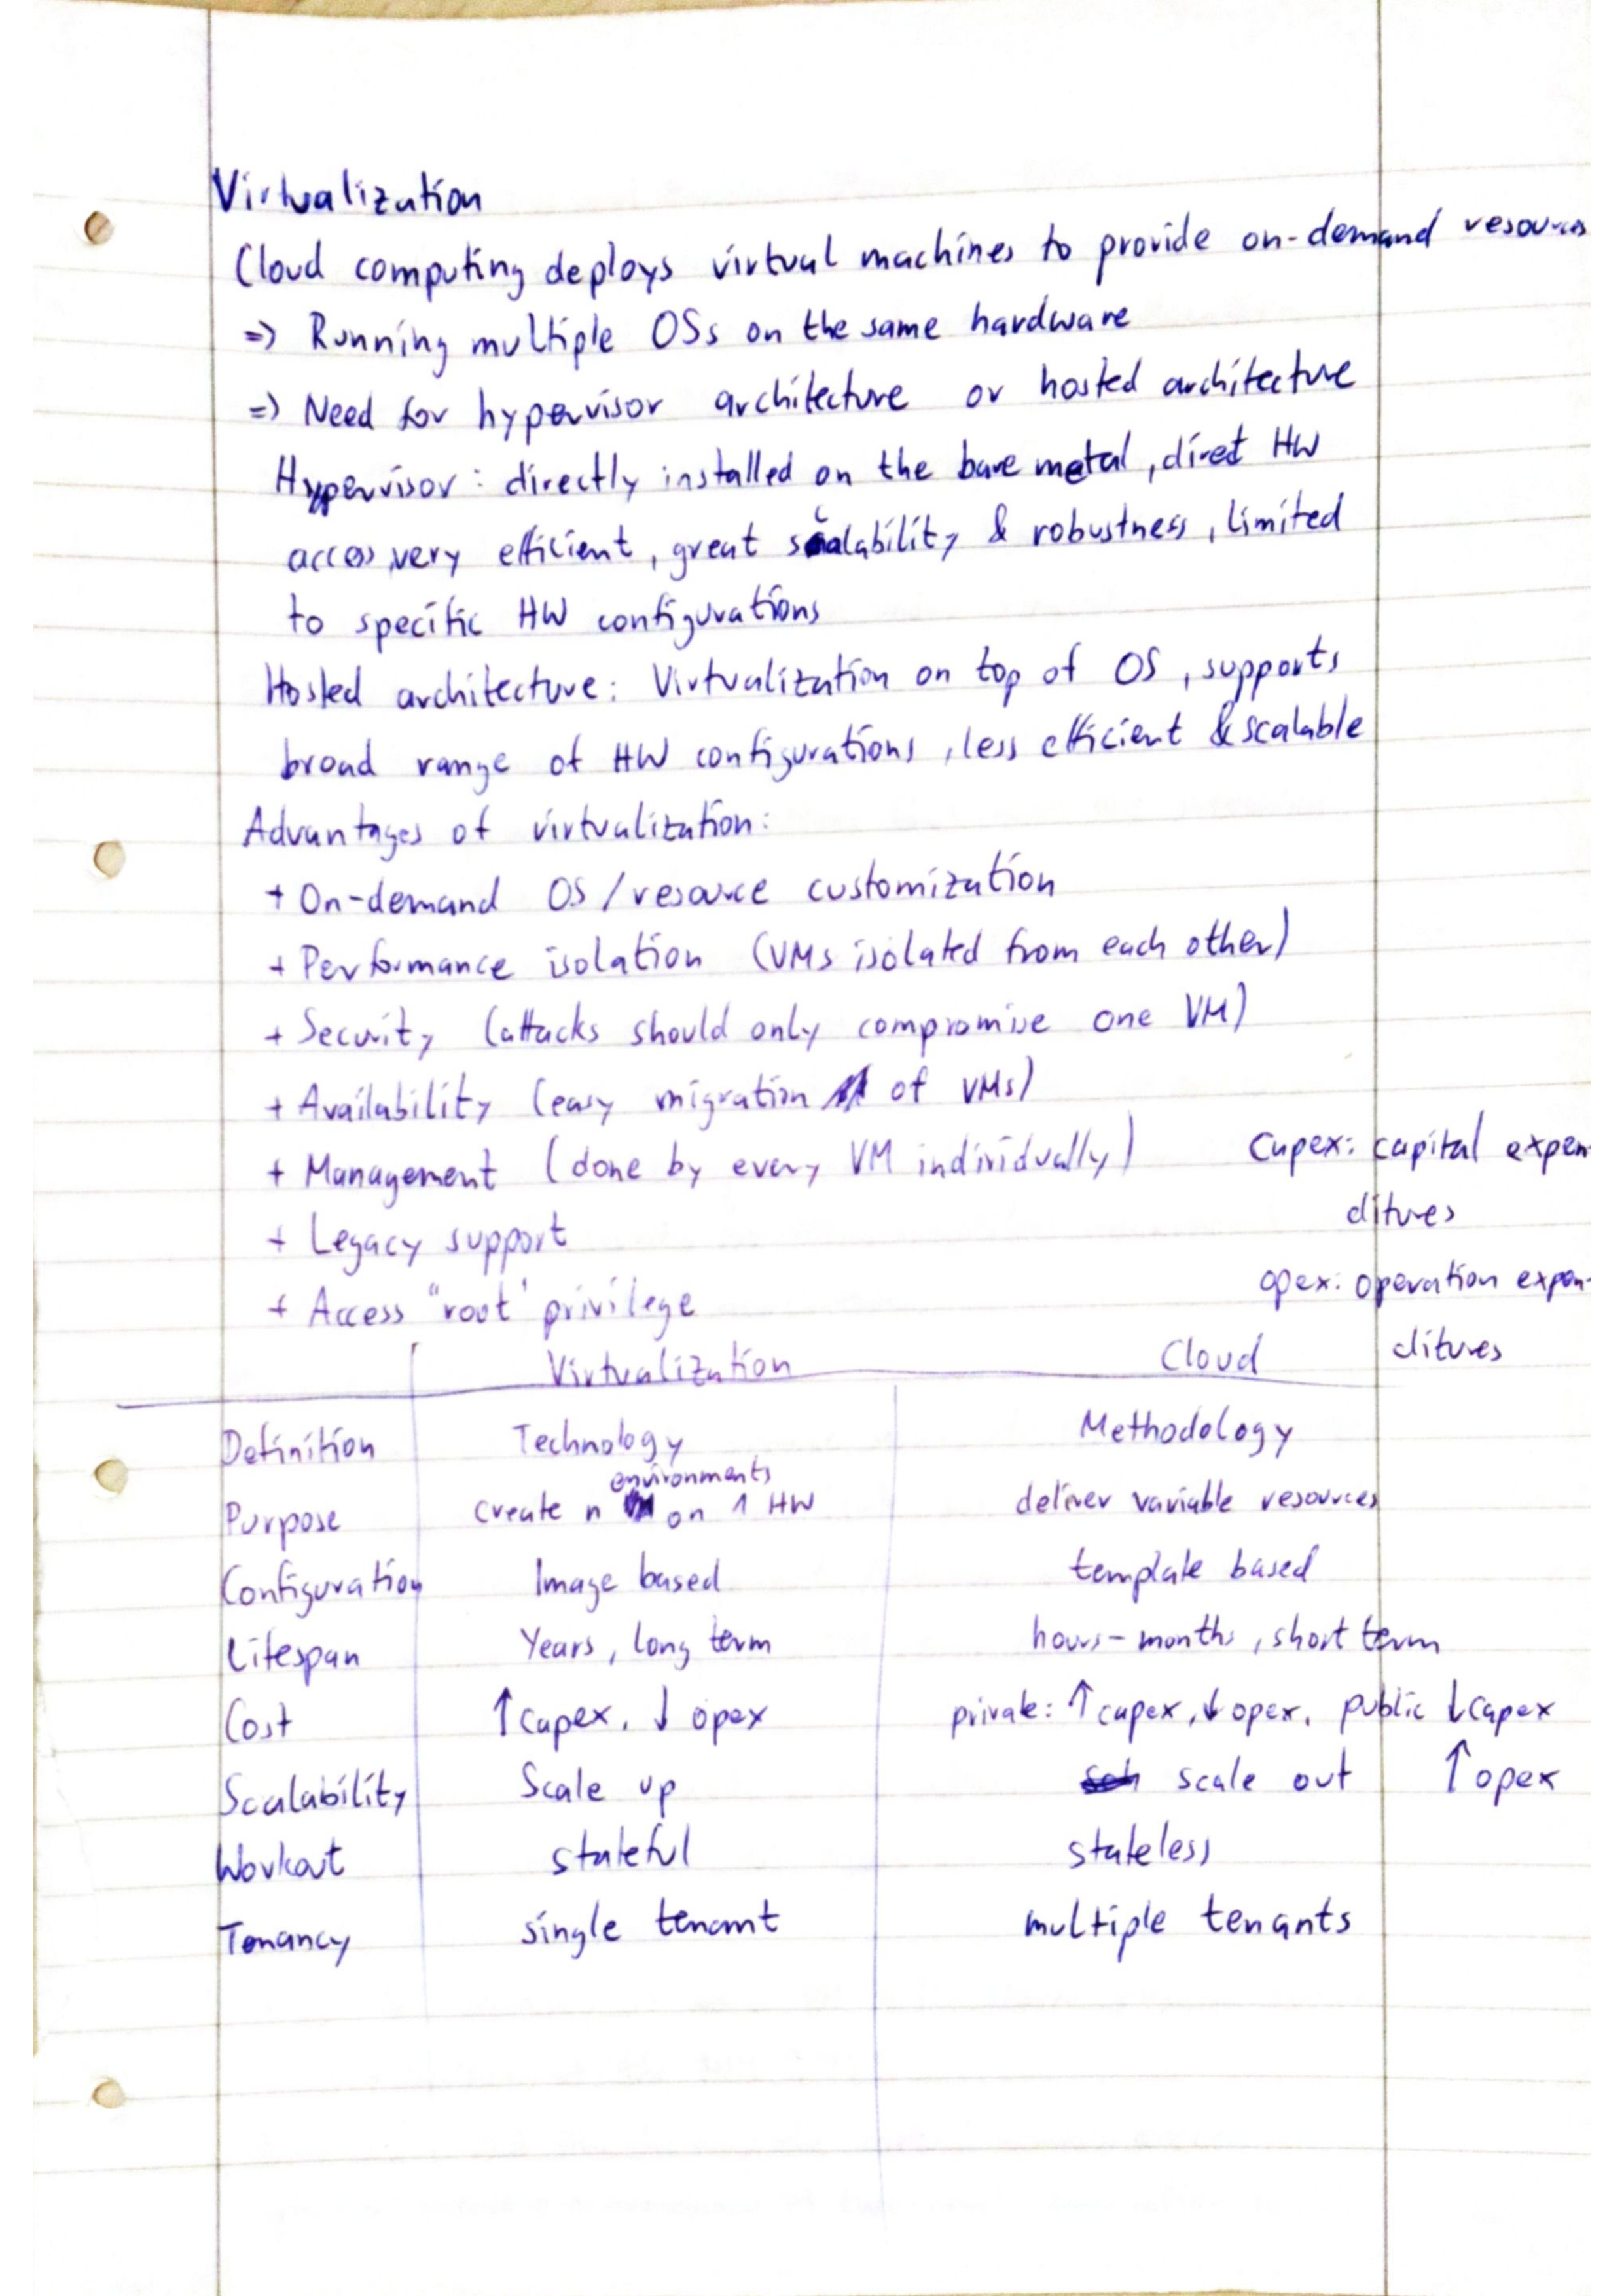 Virtualization
Cloud computing deploys virtual machines to provide on-demand resources
=> Running multiple OSs on the same hardware
=> Need for hypervisor architecture or hosted architecture
Hypervisor: directly installed on the bare metal, direct HW
access, very efficient, great scalability & robustness, limited
to specific HW configurations
Hosted architecture: Virtualization on top of OS, supports
broad range of HW configurations, less efficient & scalable
Advantages of virtualization:
+ On-demand OS/resource customization
+ Performance isolation (VMs isolated from each other)
+ Security (attacks should only compromise one VM)
+ Availability (easy migration of VMs)
+ Management (done by every VM individually)
+ Legacy support
+ Access "root" privilege
Capex: capital expen-
ditures
opex: operation expen-
ditures
Virtualization Cloud
Definition Technology Methodology
Purpose create n environments on 1 HW deliver variable resources
Configuration Image based template based
Lifespan Years, long term hours-months, short term
Cost ↑ capex, ↓ opex private: ↑ capex, ↓ opex, public ↓ capex
Scalability Scale up scale out ↑ opex
Workout stateful stateless
Tenancy single tenant multiple tenants